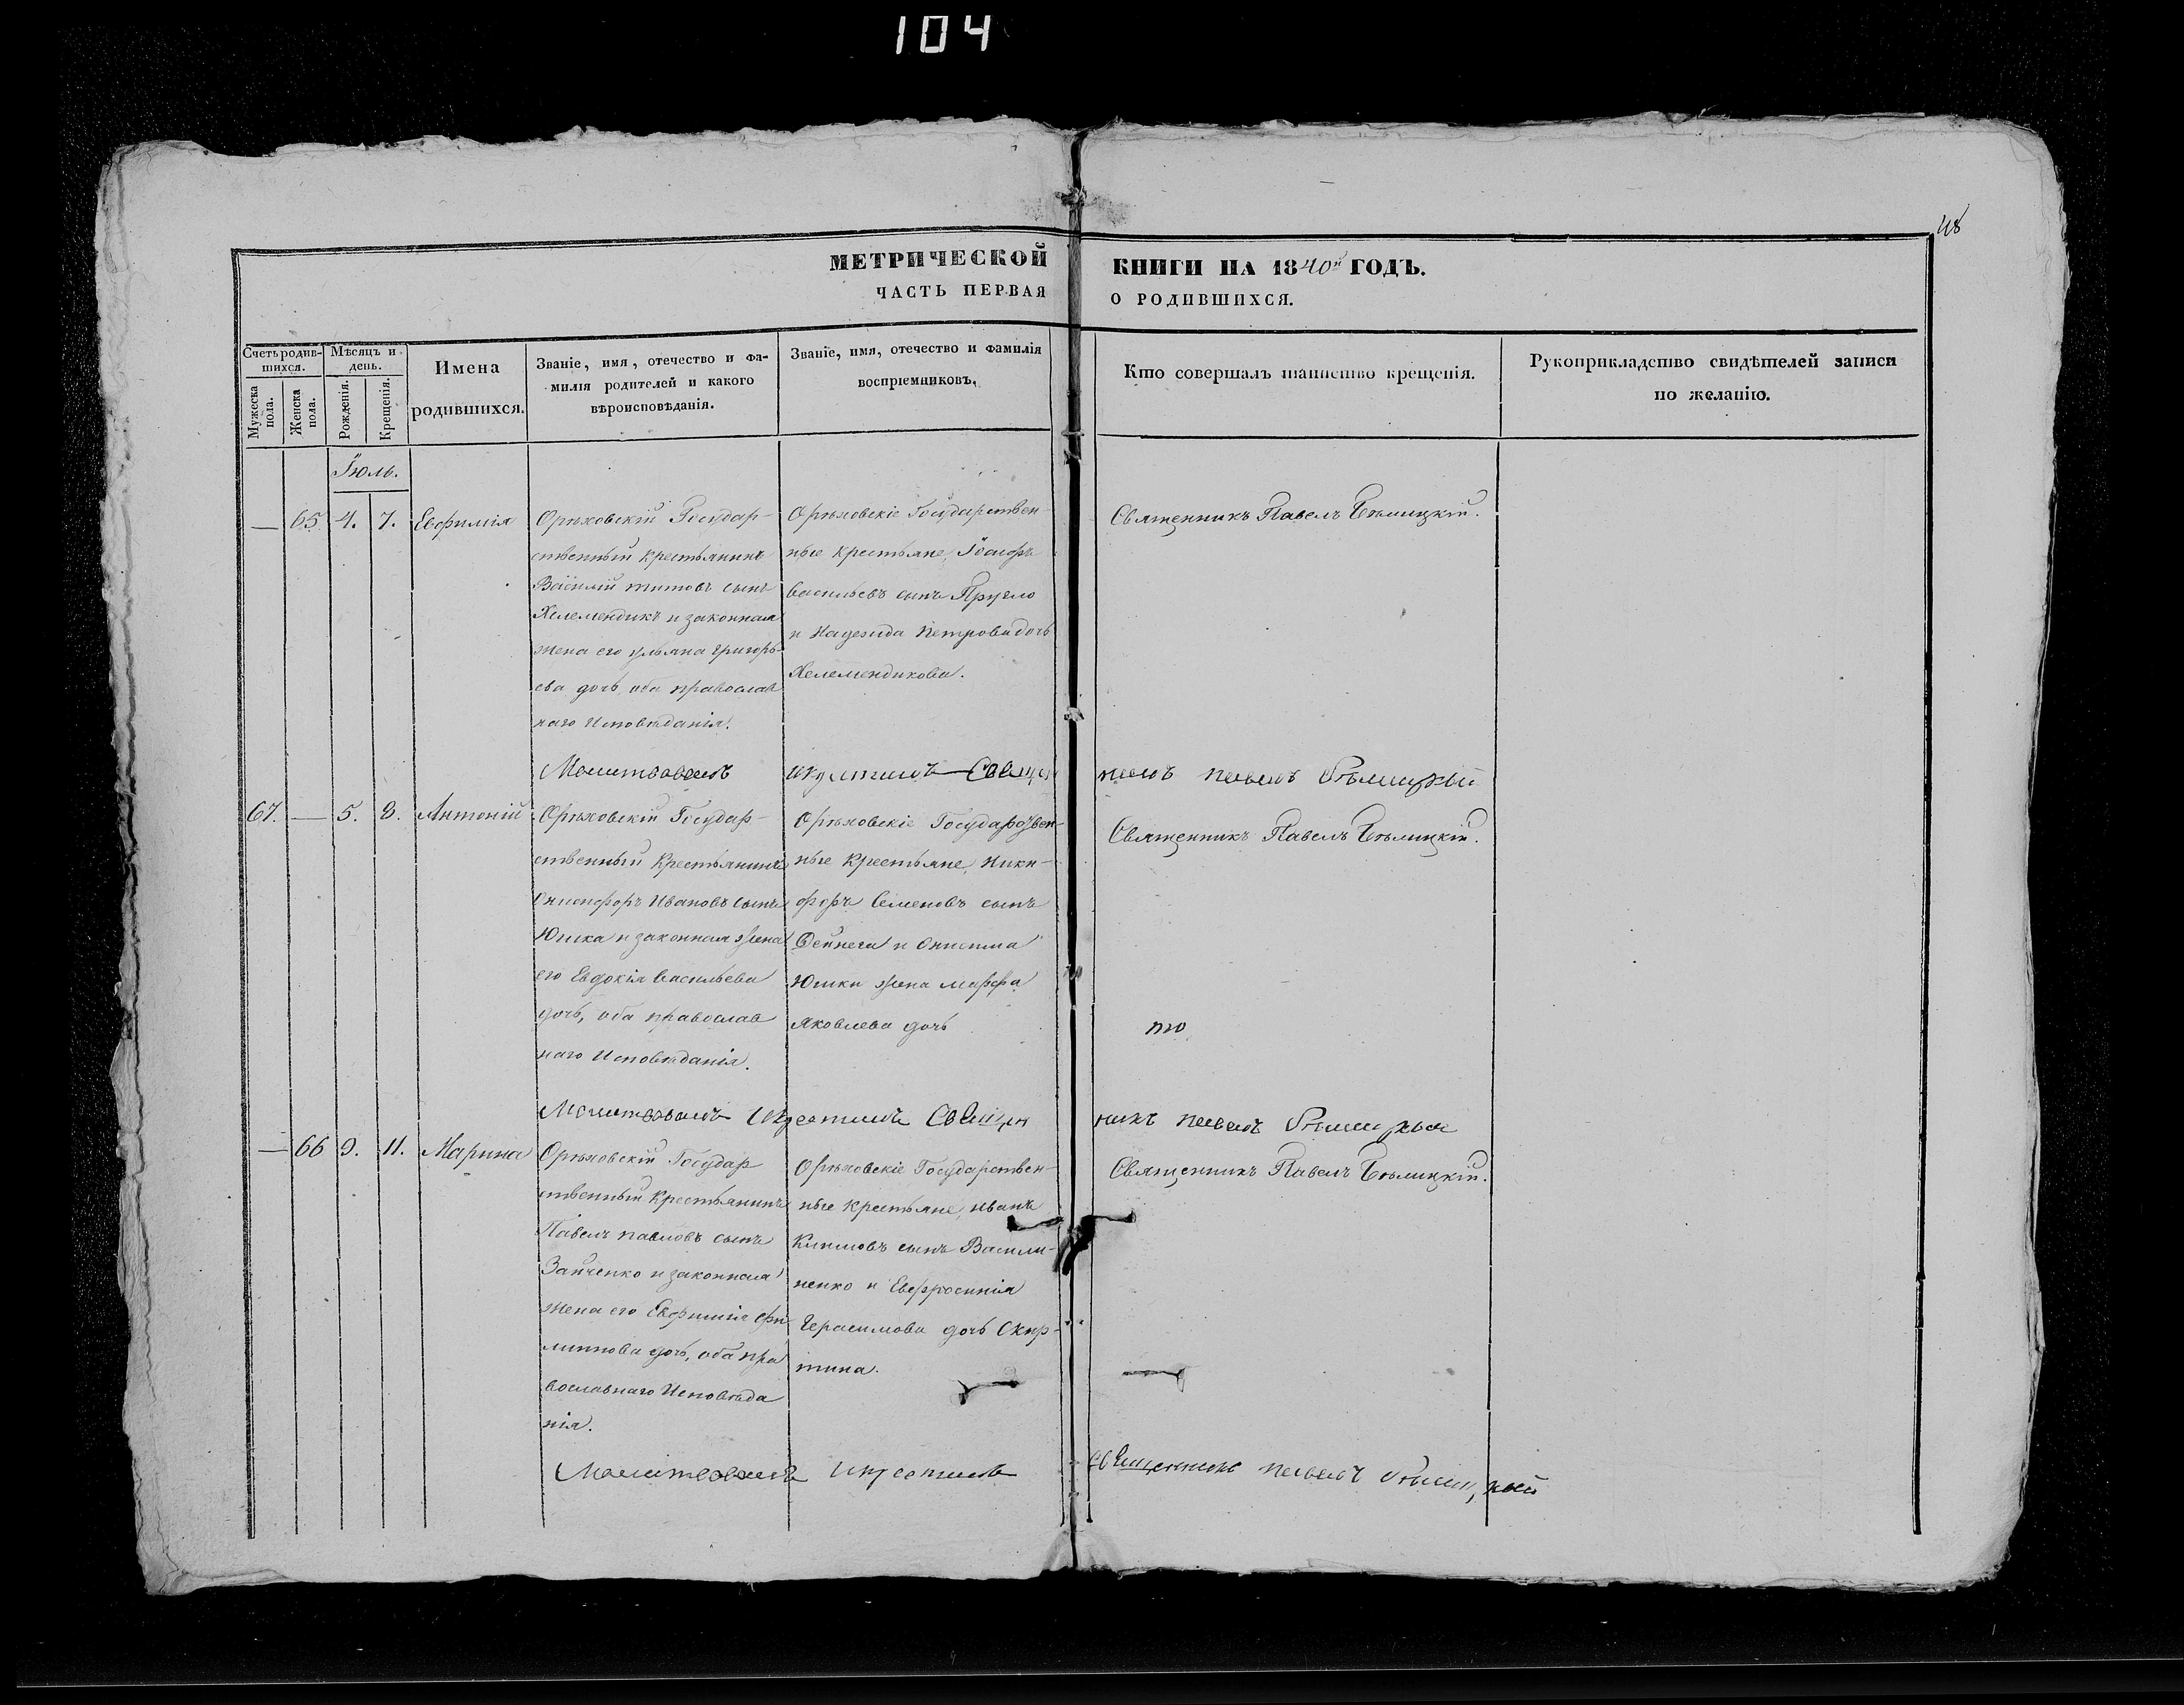 104
48
МЕТРИЧЕСКОЙ КНИГИ НА 1840й ГОДЪ.
ЧАСТЬ ПЕРВАЯ О РОДИВШИХСЯ.
Счетъ родив-
шихся.
Мужеска пола.
Женска пола.
Мѣсяцъ и
день.
Рожденія.
Крещенія.
Имена
родившихся.
Званіе, имя, отечество и фа-
милія родителей и какого
вѣроисповѣданія.
Званіе, имя, отечество и фамилія
воспріемниковъ.
Кто совершалъ таинство крещенія.
Рукоприкладство свидѣтелей записи
по желанію.
Іюль.
— 65. 4. 7. Евфимія
Орѣховскій Государ-
ственный крестьянинъ
Василій титовъ сынъ
Желемендикъ и законная
жена его ульяна григорь-
ева дочь, оба православ
наго Исповѣданія.
Орѣховскіе Государствен-
ные крестьяне, Іосифъ
васильевъ сынъ Пругло
и Надежда петрова дочь
Желемендикова.
Священникъ Павелъ Бѣлицкій.
Молитвовалъ икрестилъ Священ никъ павелъ бѣлицкый
67. — 5. 8. Антоній
Орѣховскій Государ-
ственный Крестьянинъ
Онисифоръ Ивановъ сынъ
Юшка и законная жена
его Евдокія васильева
дочь, оба православ
наго Исповѣданія.
Орѣховскіе Государствен-
ные Крестьяне, Ники-
форъ Семеновъ сынъ
Дейнега и Онисима
Юшки жена марфа
яковлева дочь
Священникъ Павелъ Бѣлицкій.
то
Молитвовалъ Икрестилъ Священ никъ павелъ бѣлицкый
— 66 9. 11. Марина
Орѣховскій Государ
ственный Крестьянинъ
Павелъ павловъ сынъ
Зайченко и законная
жена его Евфимія фи-
липпова дочь, оба пра
вославнаго Исповѣда
нія.
Орѣховскіе Государствен-
ные Крестьяне, иванъ
Климовъ сынъ Васили-
ненко и Евфросинія
Герасимова дочь Скир-
тина.
Священникъ Павелъ Бѣлицкій.
Молитвовалъ икрестилъ священникъ павелъ бѣлицкый